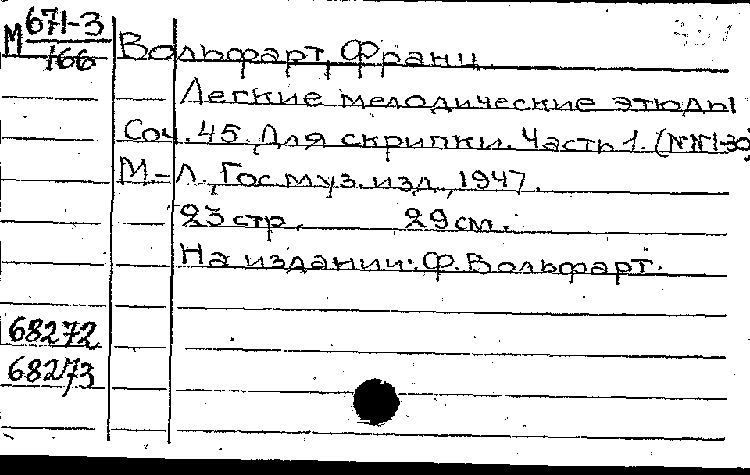 М 671-3
166
Вольфарт, Франц.
Легкие мелодические этюды
Соч. 45. Для скрипки. Часть 1. (№№1-30)
М-Л., Гос. муз. изд., 1947.
23 стр. 29 см.
На издании: Ф. Вольфарт.
68272
68273